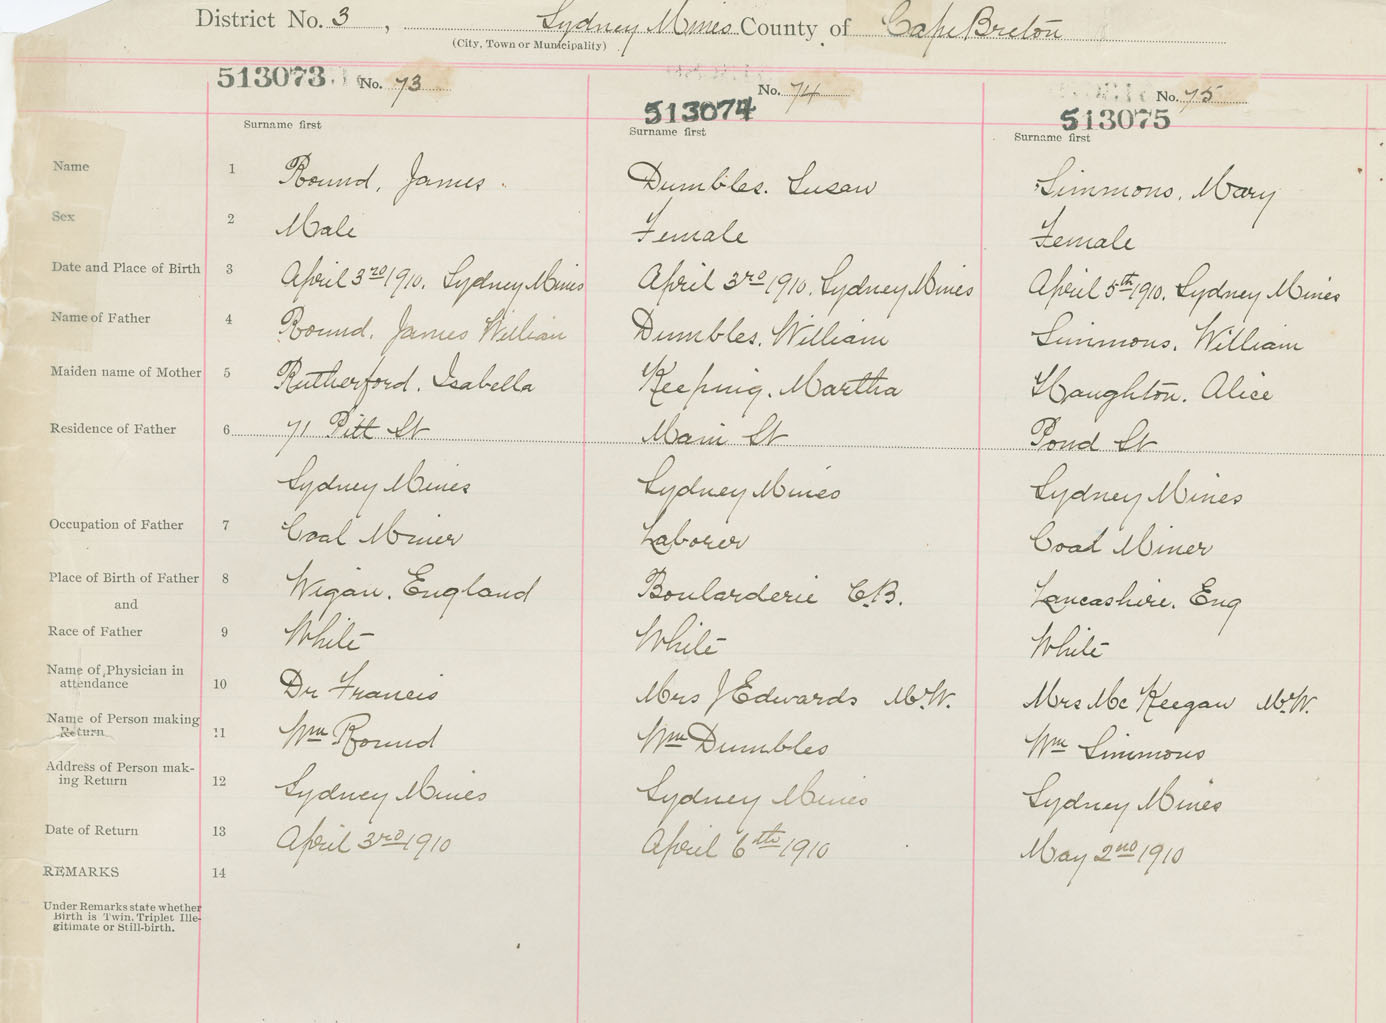 District No. 3, Sydney Mines County of Cape Breton
(City, Town or Municipality)
513073 No. 73 513074 No. 74 513075 No. 75
Surname first Surname first Surname first
Name 1 Round, James Dumbles. Susan Simmons, Mary
Sex 2 Male Female Female
Date and Place of Birth 3 April 3rd 1910. Sydney Mines April 3rd 1910. Sydney Mines April 5th 1910. Sydney Mines
Name of Father 4 Round, James William Dumbles. William Simmons. William
Maiden name of Mother 5 Rutherford. Isabella Keeping. Martha Haughton. Alice
Residence of Father 6 71 Pitt St Main St Pond St
Sydney Mines Sydney Mines Sydney Mines
Occupation of Father 7 Coal Miner Laborer Coal Miner
Place of Birth of Father 8 Wigan. England Boularderie C.B. Lancashire. Eng
and
Race of Father 9 White White White
Name of Physician in
attendance 10 Dr Francis Mrs J Edwards M.W. Mrs Mc Keegan M.W.
Name of Person making
Return 11 Wm Round Wm Dumbles Wm Simmons
Address of Person mak-
ing Return 12 Sydney Mines Sydney Mines Sydney Mines
Date of Return 13 April 3rd 1910 April 6th 1910 May 2nd 1910
REMARKS 14
Under Remarks state whether
Birth is Twin, Triplet Ille-
gitimate or Still-birth.